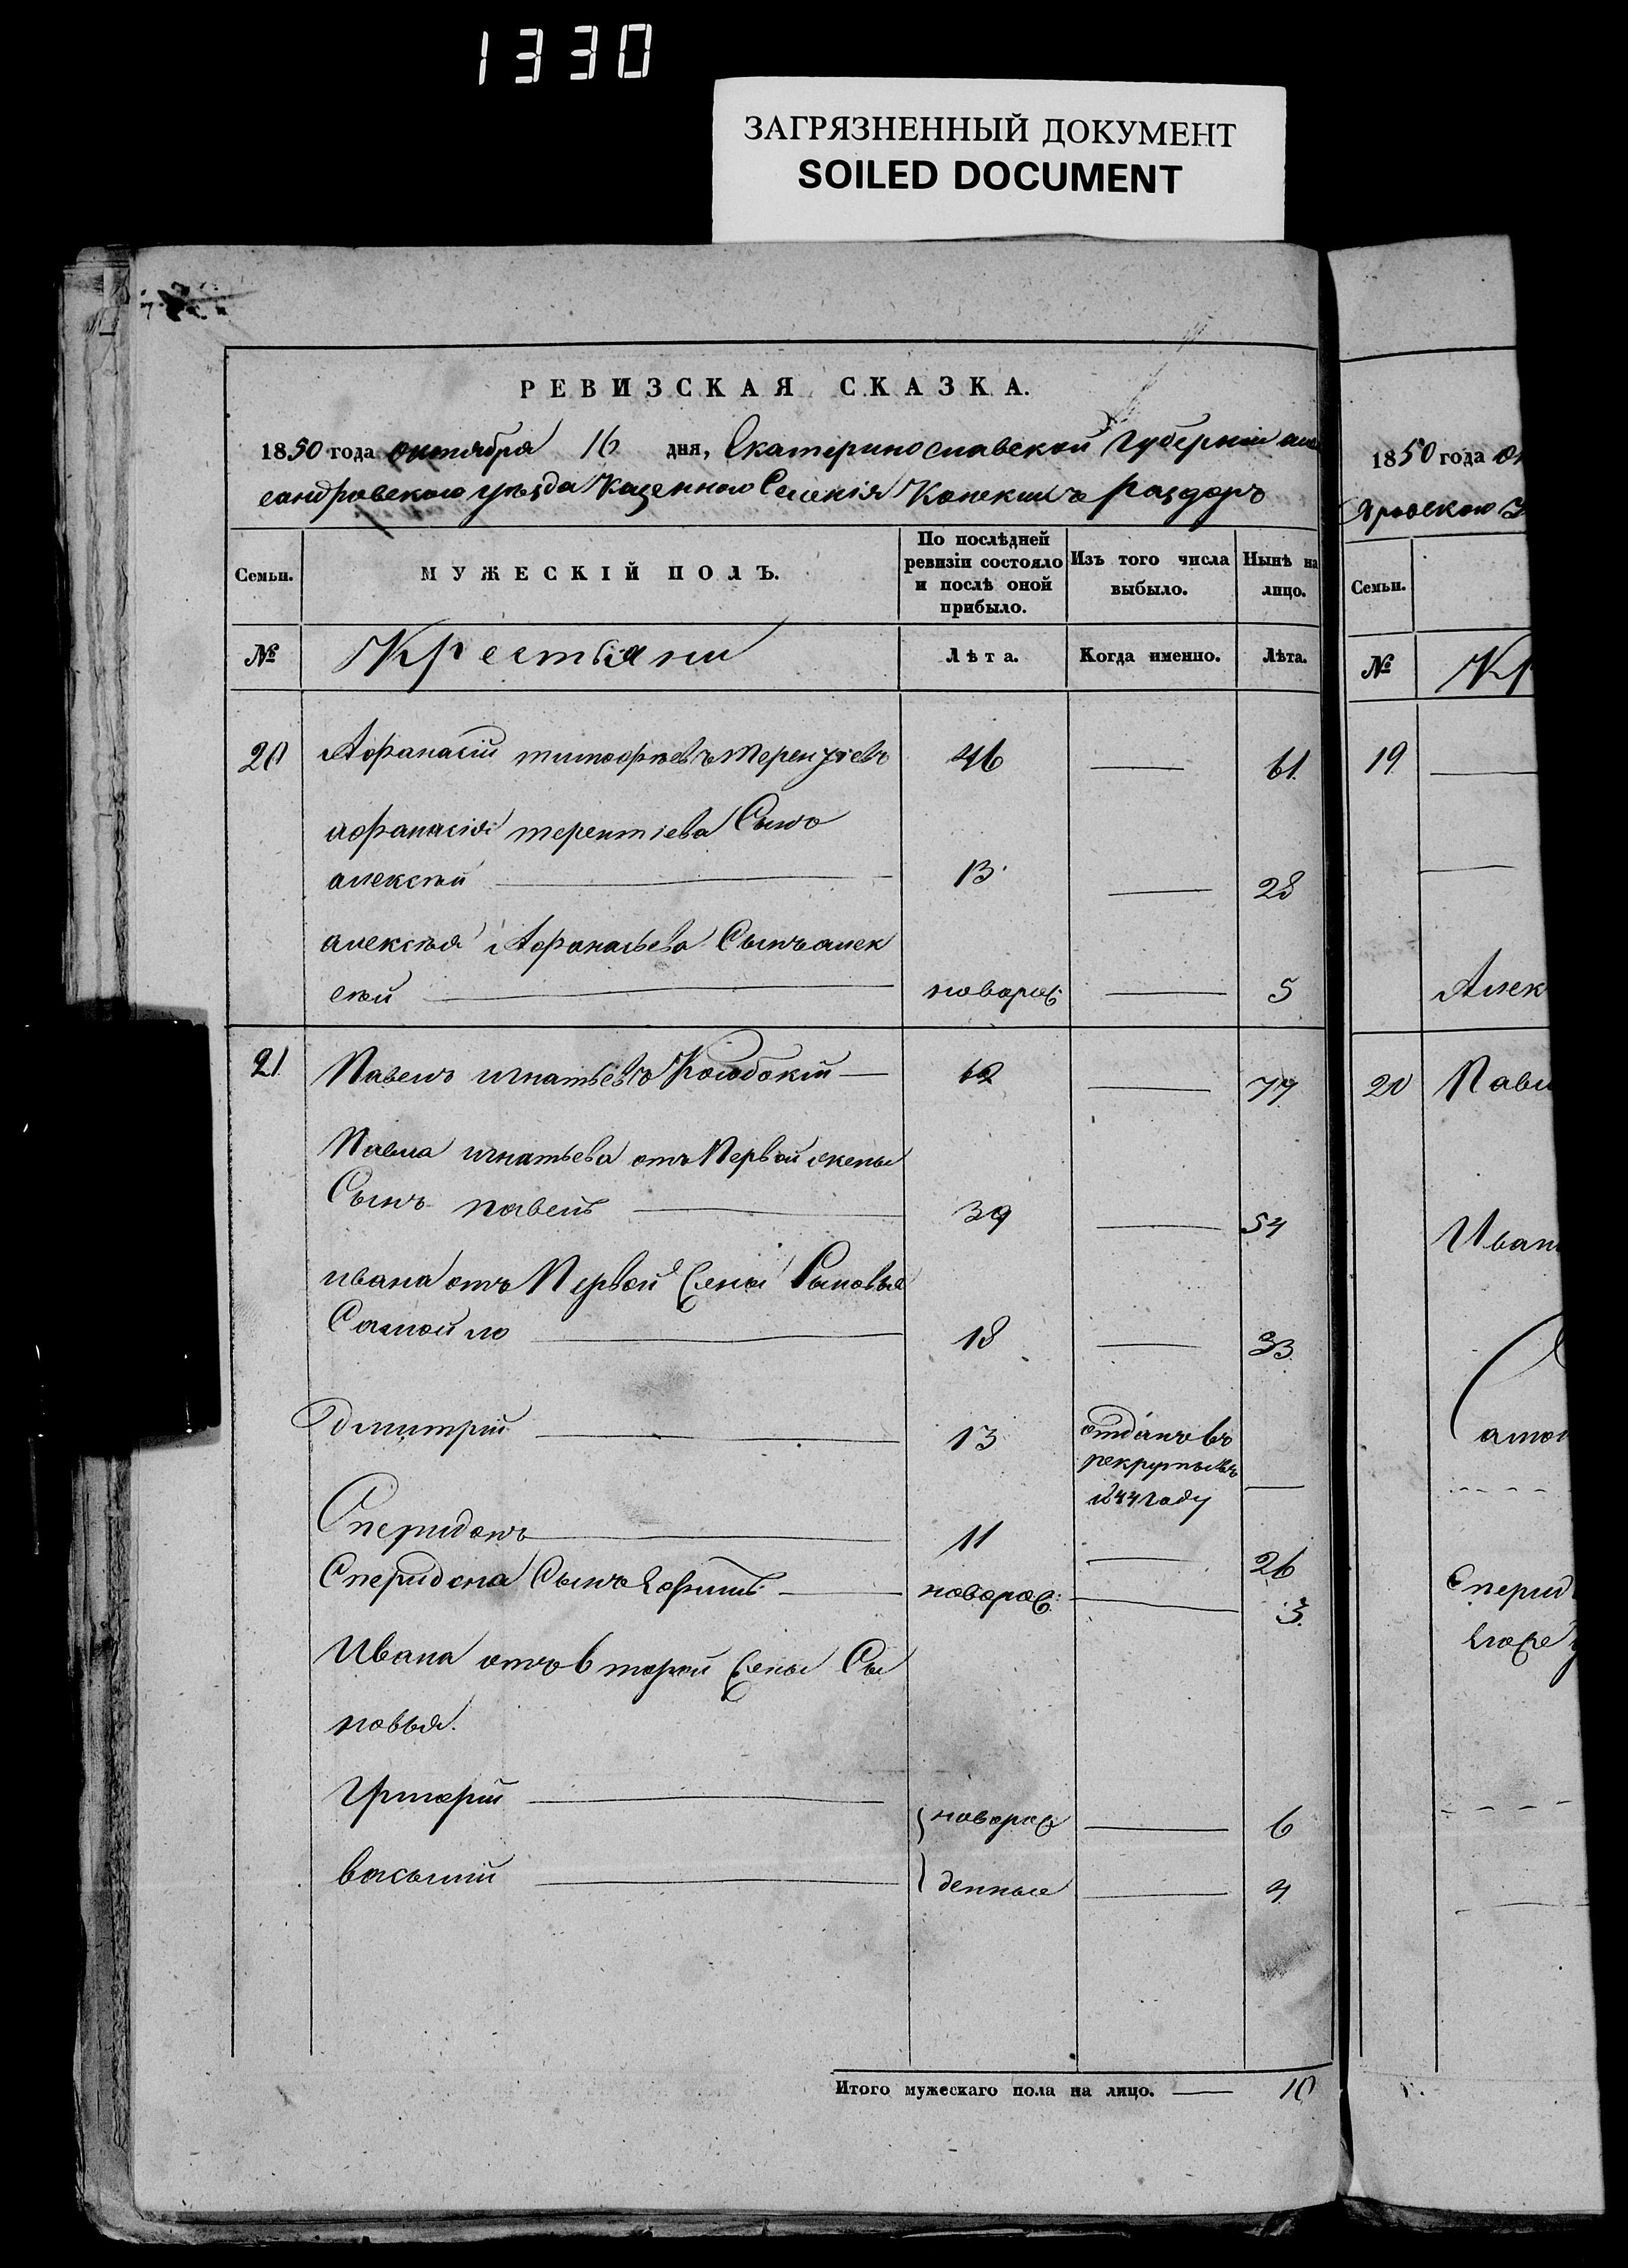 1330
ЗАГРЯЗНЕННЫЙ ДОКУМЕНТ
SOILED DOCUMENT
РЕВИЗСКАЯ СКАЗКА.
1850 года октября 16 дня, Екатеринославской Губерніи алек
сандровского уѣзда Казенного Селенія Конскихъ Раздоръ
Семьи.
МУЖЕСКІЙ ПОЛЪ.
По послѣдней ревизіи состояло и послѣ оной прибыло.
Изъ того числа выбыло.
Нынѣ на лицо.
№
Крестьяни
Лѣта.
Когда именно.
Лѣта.
20 Афанасій тимофѣевъ Терентіевъ 46 — 61
афанасія терентіева Сынъ
алексѣй — 13 — 28
алексѣя Афанасьева Сынъ алек
сѣй — новорож: — 5
21 Павелъ игнатьевъ — 62 — 77
Павла игнатьева отъ Первой жены
Сынъ — 39 — 54
ивана отъ Первой жены Сыновья
Самойло — 18 — 33
Дмитрій — 13 отданъ въ
рекруты въ
1844 году —
Сперидонъ — 11 — 26
Сперидона Сынъ — новорож: — 3
Ивана отъ второй жены Сы
новья.
Григорій — новорож — 6
василій — денные — 4
Итого мужескаго пола на лицо. — 10
1850 года
Семьи.
№ Кр
19
Алек
20 Павл
Иван
Сперид